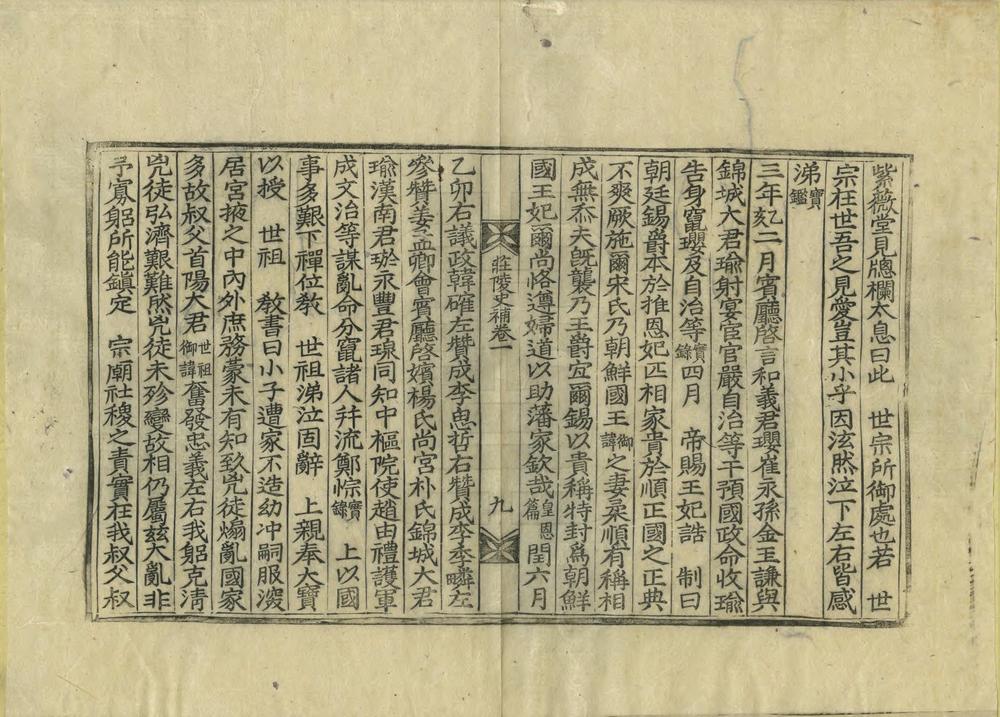 紫薇堂見牕欄太息曰此 世宗所御處也若 世
宗在世吾之見愛豈其小乎因泫然泣下左右皆感
涕寶鑑
三年乙亥二月賓廳啓言和義君瓔崔永孫金玉謙與
錦城大君瑜射宴宦官嚴自治等干預國政命收瑜
告身竄瓔及自治等實錄四月 帝賜王妃誥 制曰
朝廷錫爵本於推恩妃匹相家貴於順正國之正典
不爽厥施爾宋氏乃朝鮮國王御諱之妻柔順有稱相
成無忝夫旣襲乃王爵宜爾錫以貴稱特封爲朝鮮
國王妃爾尚恪遵婦道以助藩家欽哉皇恩篇閏六月
莊陵史補卷一
九
乙卯右議政韓確左贊成李思哲右贊成李季疄左
參贊姜孟卿會賓廳啓嬪楊氏尚宮朴氏錦城大君
瑜漢南君𤥽永豐君瑔同知中樞院使趙由禮護軍
成文治等謀亂命分竄諸人幷流鄭悰實錄 上以國
事多艱下禪位敎 世祖涕泣固辭 上親奉大寶
以授 世祖 敎書曰小子遭家不造幼冲嗣服深
居宮掖之中內外庶務蒙未有知致兇徒煽亂國家
多故叔父首陽大君世祖御諱奮發忠義左右我躬克淸
兇徒弘濟艱難然兇徒未殄變故相仍屬玆大亂非
予寡躬所能鎭定 宗廟社稷之責實在我叔父叔